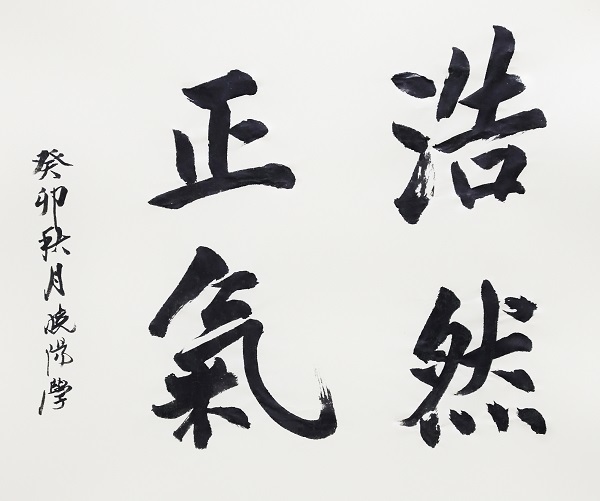 浩然
正氣
癸卯秋月晓陽學